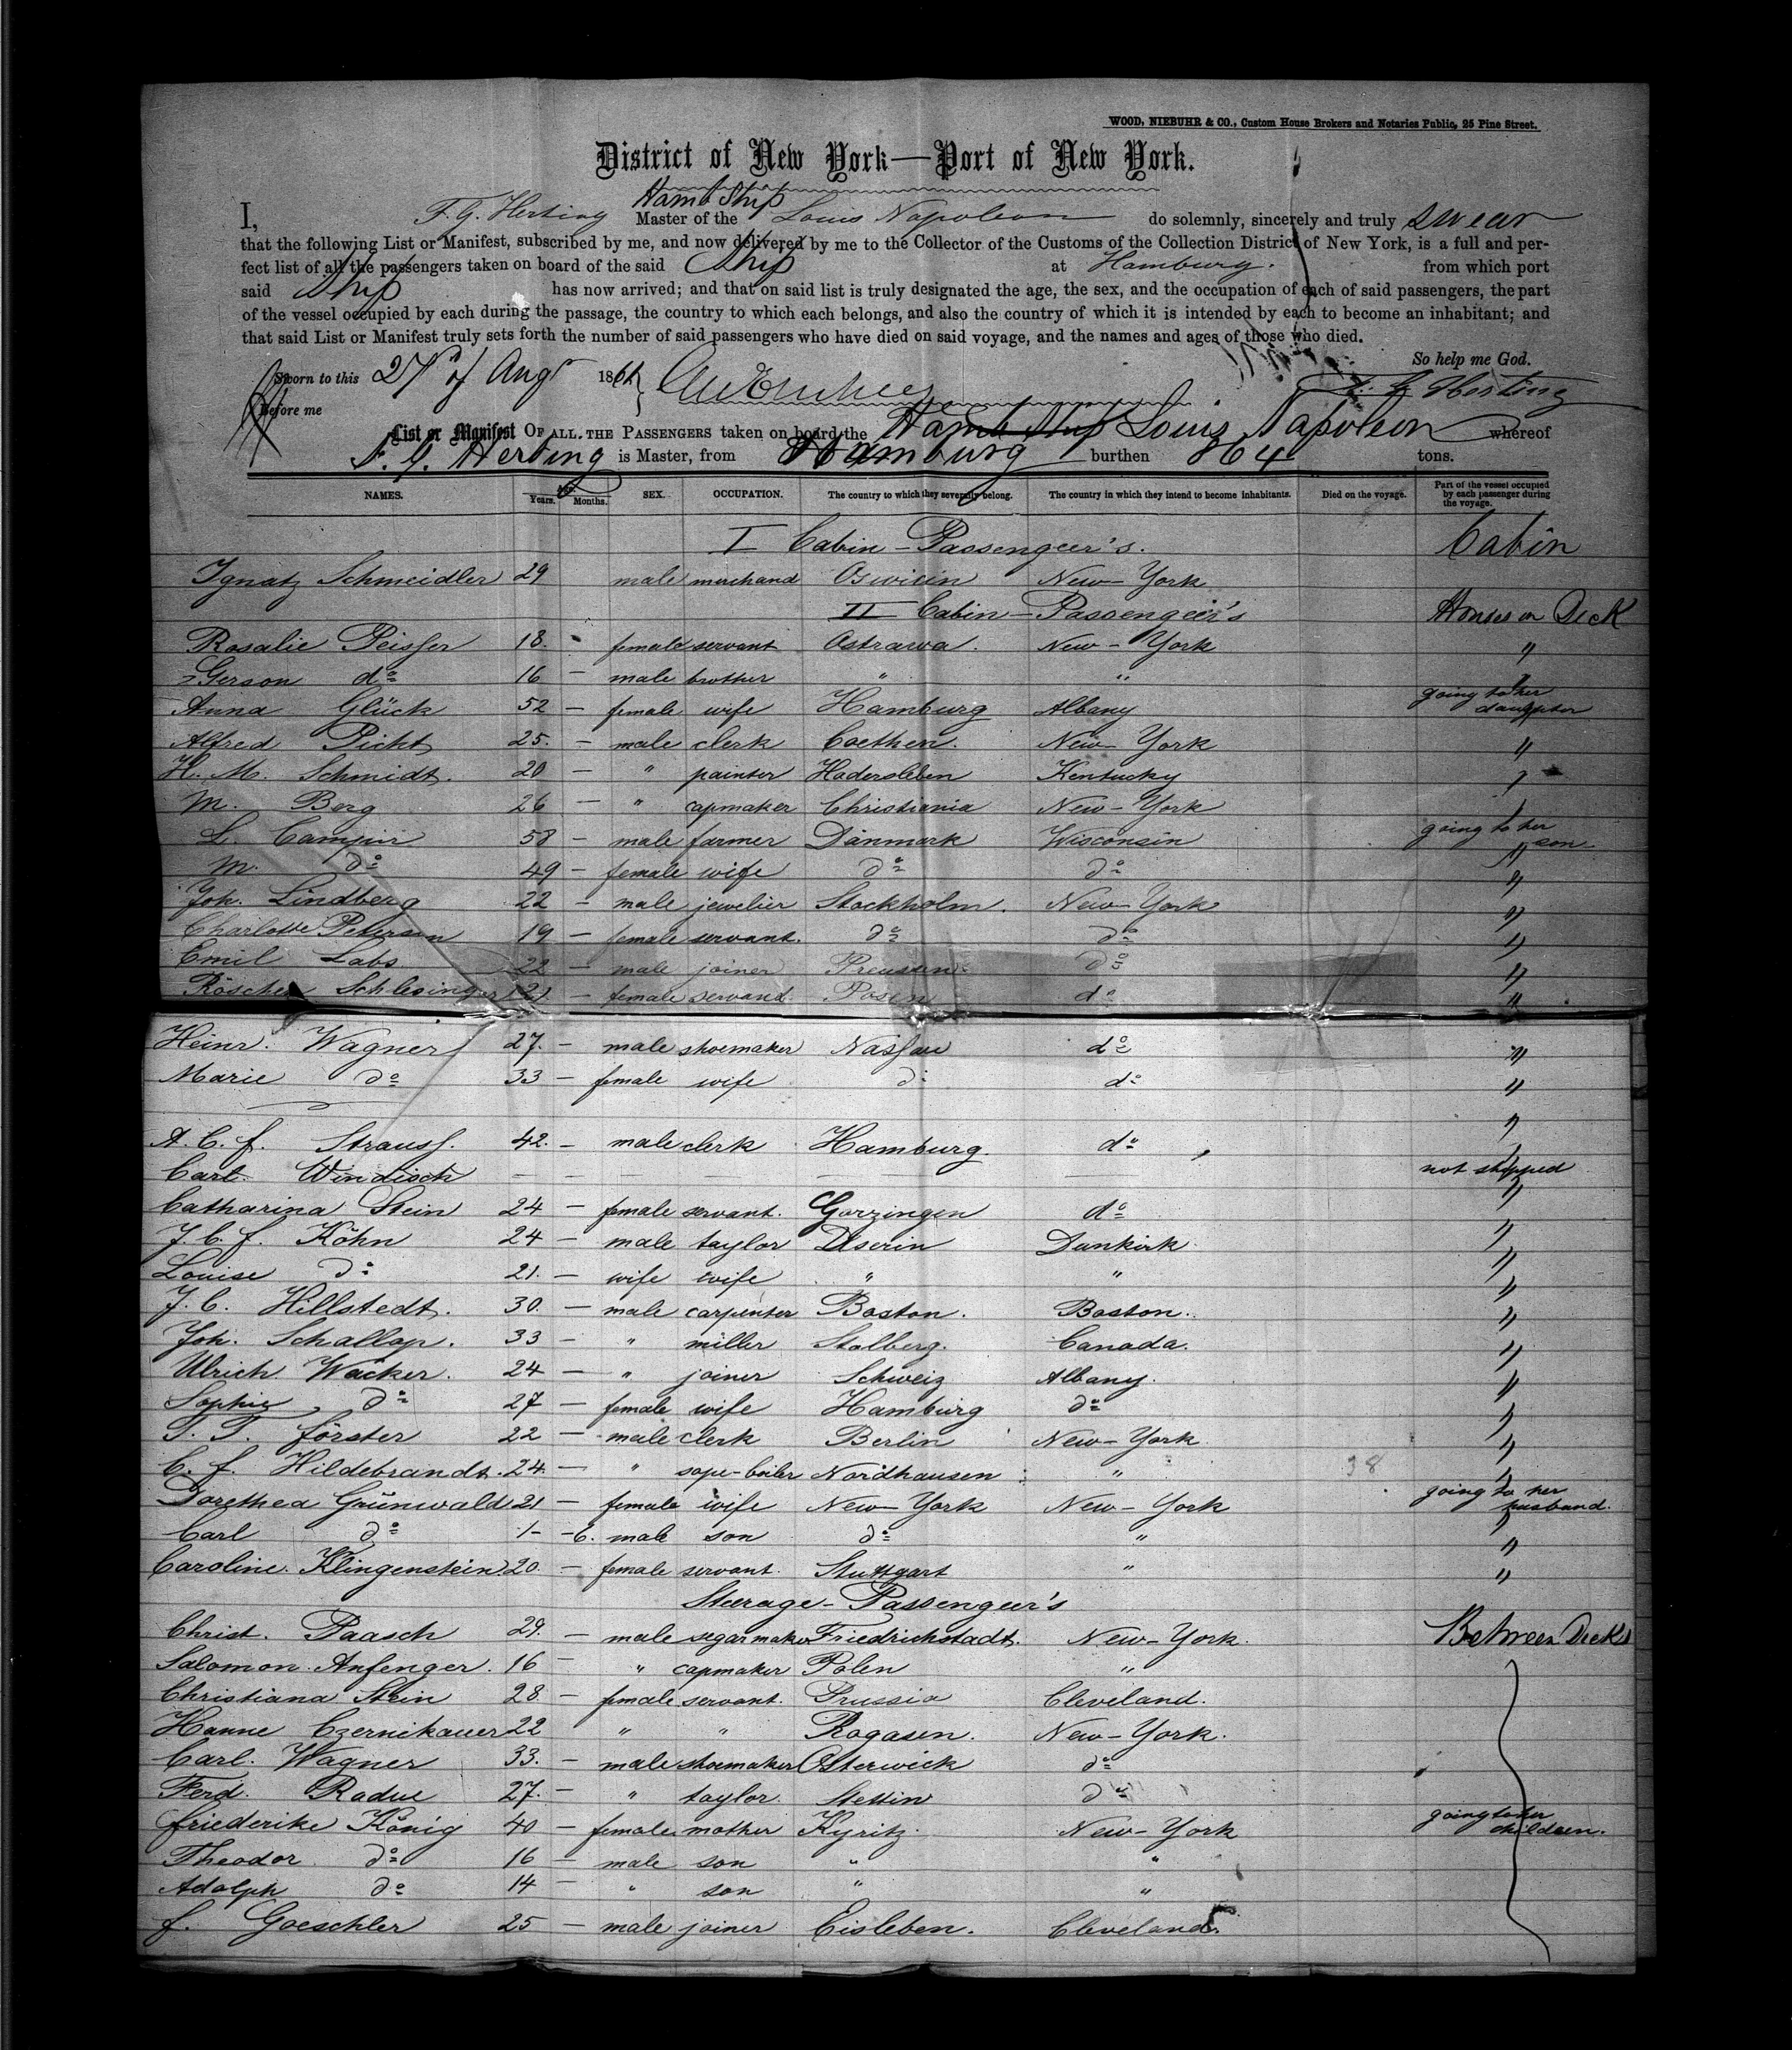 WOOD, NIEBUHR & CO., Custom House Brokers and Notaries Public, 25 Pine Street.
District of New York—Port of New York.
Hamb Ship
I, F. G. Herting Master of the Louis Napoleon do solemnly, sincerely and truly swear
that the following List or Manifest, subscribed by me, and now delivered by me to the Collector of the Customs of the Collection District of New York, is a full and per-
fect list of all the passengers taken on board of the said Ship at Hamburg. from which port
said Ship has now arrived; and that on said list is truly designated the age, the sex, and the occupation of each of said passengers, the part
of the vessel occupied by each during the passage, the country to which each belongs, and also the country of which it is intended by each to become an inhabitant; and
that said List or Manifest truly sets forth the number of said passengers who have died on said voyage, and the names and ages of those who died.
So help me God.
Sworn to this 27 of Aug 1861 F. G. Herting
Before me
List or Manifest OF ALL THE PASSENGERS taken on board the Hamb Ship Louis Napoleon whereof
F. G. Herting is Master, from Hamburg burthen 864 tons.
NAMES. Age. Years. Months. SEX. OCCUPATION. The country to which they severally belong. The country in which they intend to become inhabitants. Died on the voyage. Part of the vessel occupied by each passenger during the voyage.
I Cabin-Passengeer's. Cabin
Ignatz Schmeidler 29 male merchand Oswicin New-York
II Cabin-Passengeer's Houses on Deck
Rosalie Peisser 18. female servant Ostrawa. New-York "
Gerson do 16 — male brother " "
Anna Glück 52 — female wife Hamburg Albany going to her daughter "
Alfred Picht 25. — male clerk Coethen. New York "
H. M. Schmidt. 20 — " painter Hadersleben Kentucky "
M. Berg 26 — " capmaker Christiania New-York "
L. Campin 58 — male farmer Dänmark Wisconsin going to her son "
M. do 49 — female wife do do "
Joh. Lindberg 22 — male jewelier Stockholm. New-York "
Charlotte Petersen 19 — female servant. do do "
Emil Labs 22 — male joiner Preussen. do "
Röschen Schlesinger 21 — female servand. Posen do "
Heinr. Wagner 27. — male shoemaker Nassau do "
Marie do 33 — female wife do do "
A. C. F. Strauss. 42. — male clerk Hamburg. do "
Carl Windisch — — — — — not shipped
Catharina Stein 24 — female servant. Gorzingen do "
J. C. F. Köhn 24 — male taylor Userin Dunkirk "
Louise do 21. — wife wife " " "
J. C. Hillstedt. 30. — male carpenter Boston. Boston. "
Joh. Schallop. 33 — " miller Stolberg. Canada. "
Ulrich Wacker. 24 — " joiner Schweiz Albany. "
Sophie do 27 — female wife Hamburg do "
T. T. Förster 22 — male clerk Berlin New-York "
C. F. Hildebrandt. 24. — " sope-boiler Nordhausen " 38 "
Dorethea Grünwald 21 — female wife New-York New-York going to her husband.
Carl do 1 — 6. male son do " "
Caroline Klingenstein 20. — female servant. Stuttgart " "
Steerage-Passengeer's
Christ. Paasch 29. — male segarmaker Friedrichstadt. New-York. Between Decks
Salomon Anfenger. 16 — " capmaker Polen "
Christiana Stein 28 — female servant. Prussia Cleveland.
Hanne Czernikauer 22 " " Rogasen. New-York.
Carl. Wagner 33. — male shoemaker Osterwick do
Ferd. Radue 27. — " taylor Stettin do
Friederike König 40 — female mother Kyritz. New-York going to her children.
Theodor do 16 — male son " "
Adolph do 14 — " son " "
F. Goeschler 25 — male joiner Eisleben. Cleveland.